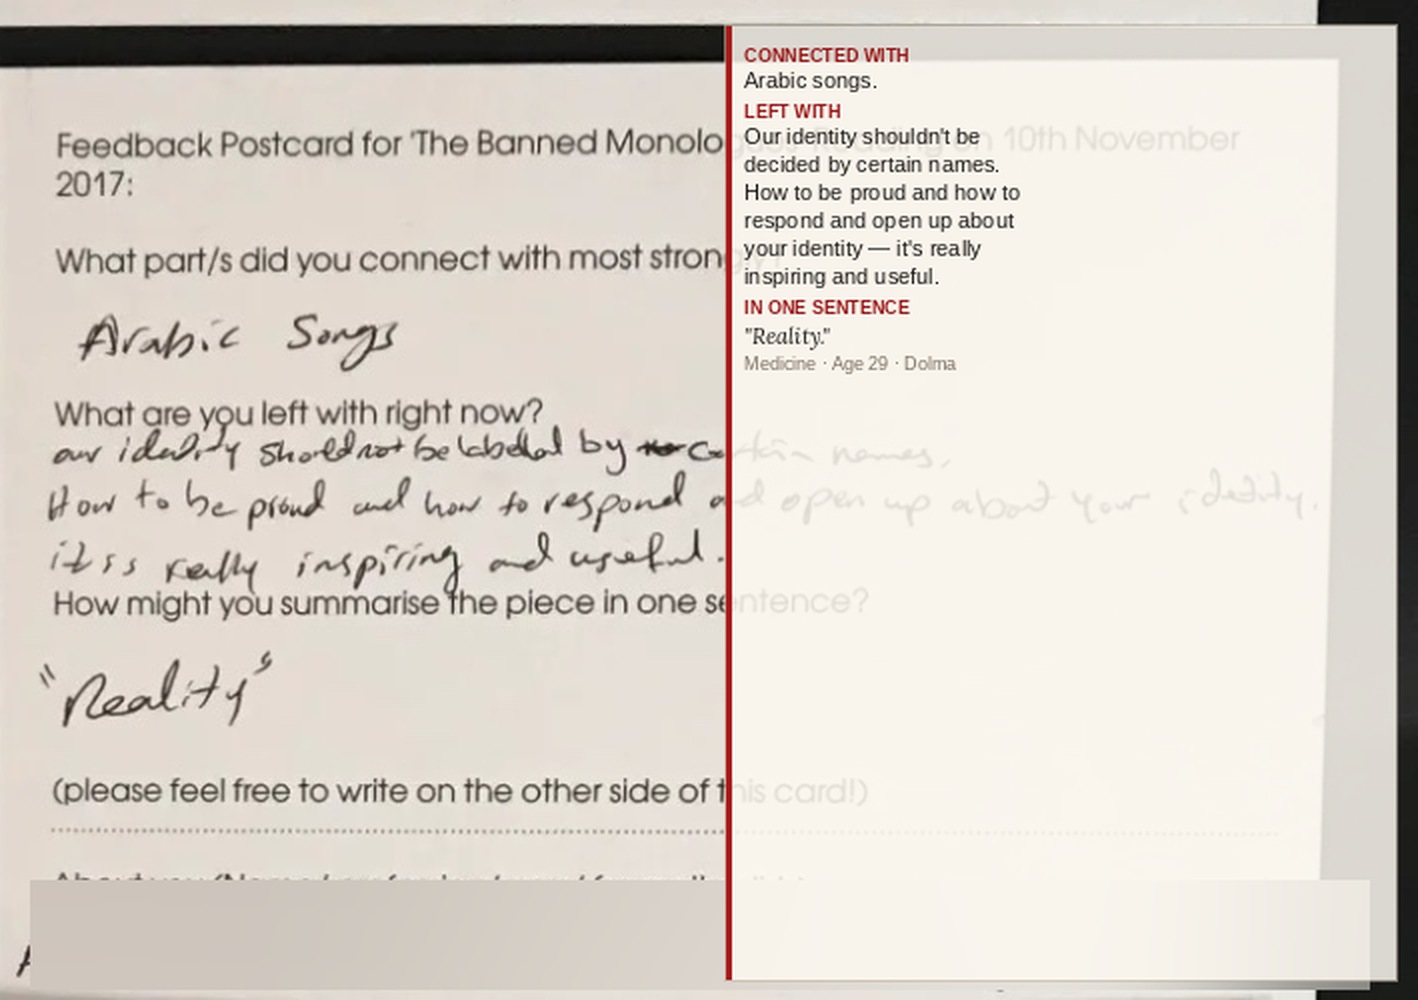 Feedback Postcard for 'The Banned Monologues' Reading on 10th November
2017:
What part/s did you connect with most strongly?
Arabic Songs
What are you left with right now?
our identity should not be labelled by certain names.
How to be proud and how to respond and open up about your identity.
it is really inspiring and useful.
How might you summarise the piece in one sentence?
"Reality"
(please feel free to write on the other side of this card!)
CONNECTED WITH
Arabic songs.
LEFT WITH
Our identity shouldn't be
decided by certain names.
How to be proud and how to
respond and open up about
your identity — it's really
inspiring and useful.
IN ONE SENTENCE
"Reality."
Medicine · Age 29 · Dolma